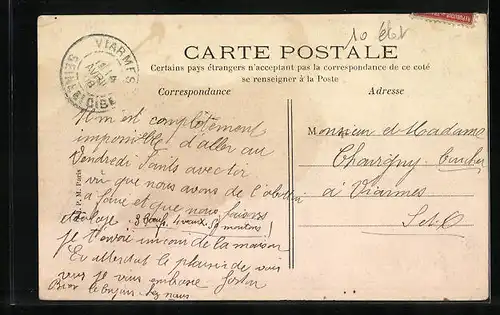 10 élév
CARTE POSTALE
Certains pays étrangers n'acceptant pas la correspondance de ce coté
se renseigner à la Poste
Correspondance
Adresse
VIARMES
AVRIL
SEINE ET OISE
P. M. Paris
Il m est complètement
impossible d'aller au
Vendredi Saints avec toi
vû que nous avons de l'
a faire et que nous faisons
étalage. 3 Bœufs 4 veaux 59 moutons!
je t'envoi un coin de la maison
En attendant le plaisir de vous
voir je vous embrasse
le bonjour chez nous
Monsieur et Madame
Chauvigny
à Viarmes
S et O